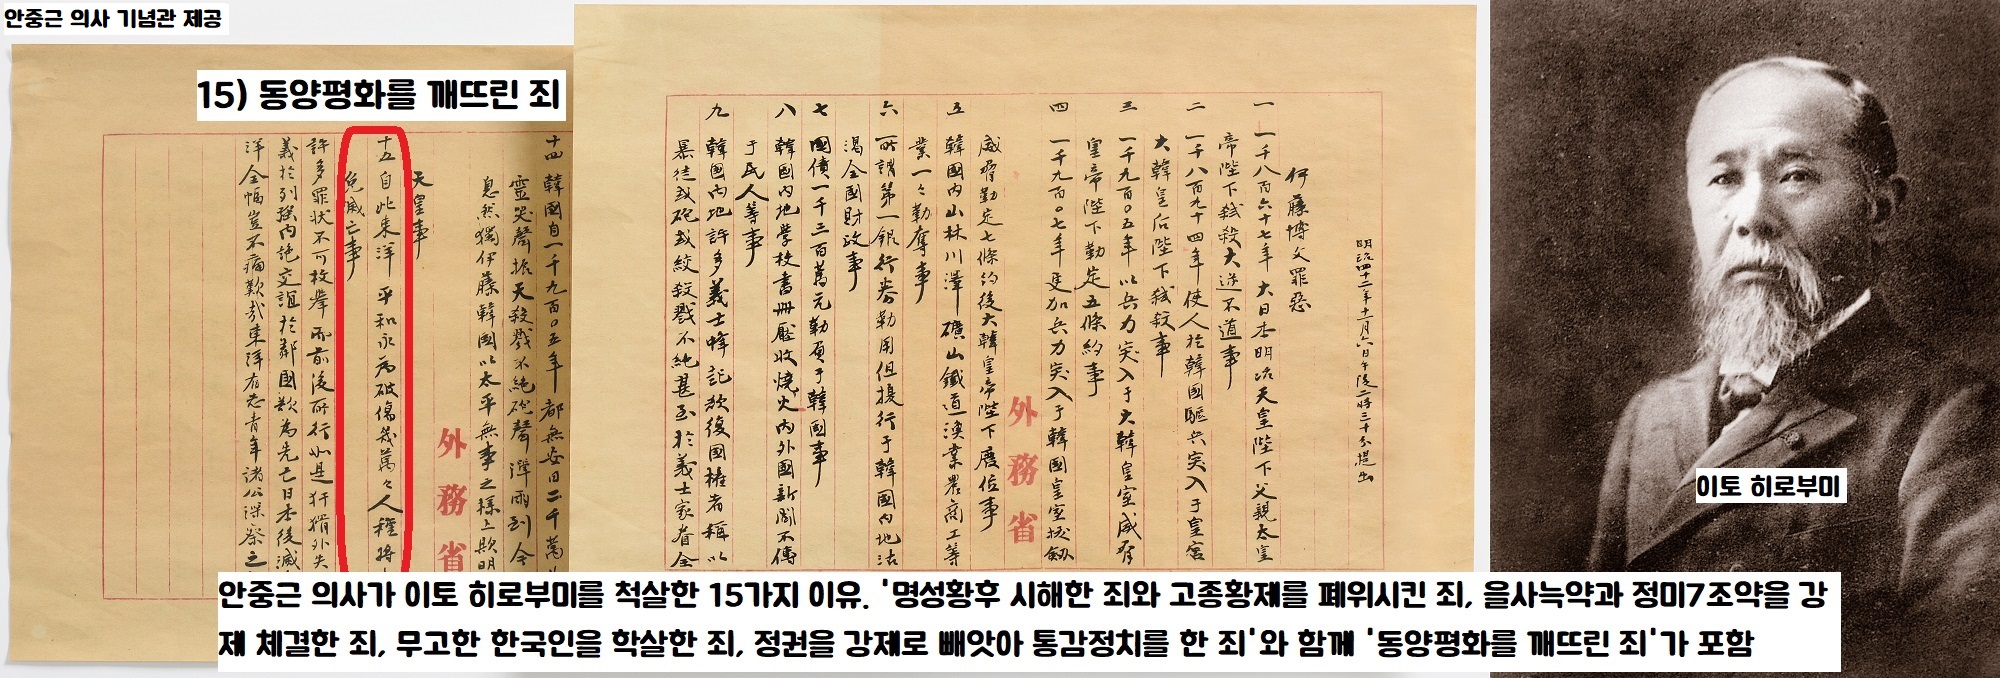 안중근 의사 기념관 제공
15) 동양평화를 깨뜨린 죄
明治四十二年十一月六日午後二時三十分提出
伊藤博文罪惡
一 一千八百六十七年 大日本明治天皇陛下父親太皇
帝陛下弑殺大逆不道事
二 一千八百九十四年使人於韓國驅兵突入于皇宮
大韓皇后陛下弑殺事
三 一千九百〇五年以兵力突入于大韓皇室威脅
皇帝陛下勒定五條約事
四 一千九百〇七年更加兵力突入于韓國皇室拔劒
威脅勒定七條約後大韓皇帝陛下廢位事
外務省
五 韓國內山林川澤礦山鐵道漁業農商工等
業一々勒奪事
六 所謂第一銀行券勒用但擾行于韓國內地沽
渴全國財政事
七 國債一千三百萬元勒負于韓國事
八 韓國內地學校書冊壓收燒火內外國新聞不傳
于民人等事
九 韓國內地許多義士蜂記欲復國權者稱以
暴徒或砲或絞殺戮不絶甚至於義士家眷全
十四 韓國自一千九百〇五年都無安日二千萬
靈哭聲振天殺戮不絶砲聲潭雨到今
息然獨伊藤韓國以太平無事之樣上欺明
外務省
天皇事
十五 自此東洋平和永為破傷幾萬々人種將
免滅亡事
許多罪狀不可枚擧而前後所行如是奸猾外失
義於列強內絶交誼於鄰國欲為先亡日本後滅
洋全幅豈不痛歎哉東洋有志青年諸公深察之
이토 히로부미
안중근 의사가 이토 히로부미를 척살한 15가지 이유. '명성황후 시해한 죄와 고종황제를 폐위시킨 죄, 을사늑약과 정미7조약을 강
제 체결한 죄, 무고한 한국인을 학살한 죄, 정권을 강제로 빼앗아 통감정치를 한 죄'와 함께 '동양평화를 깨뜨린 죄'가 포함